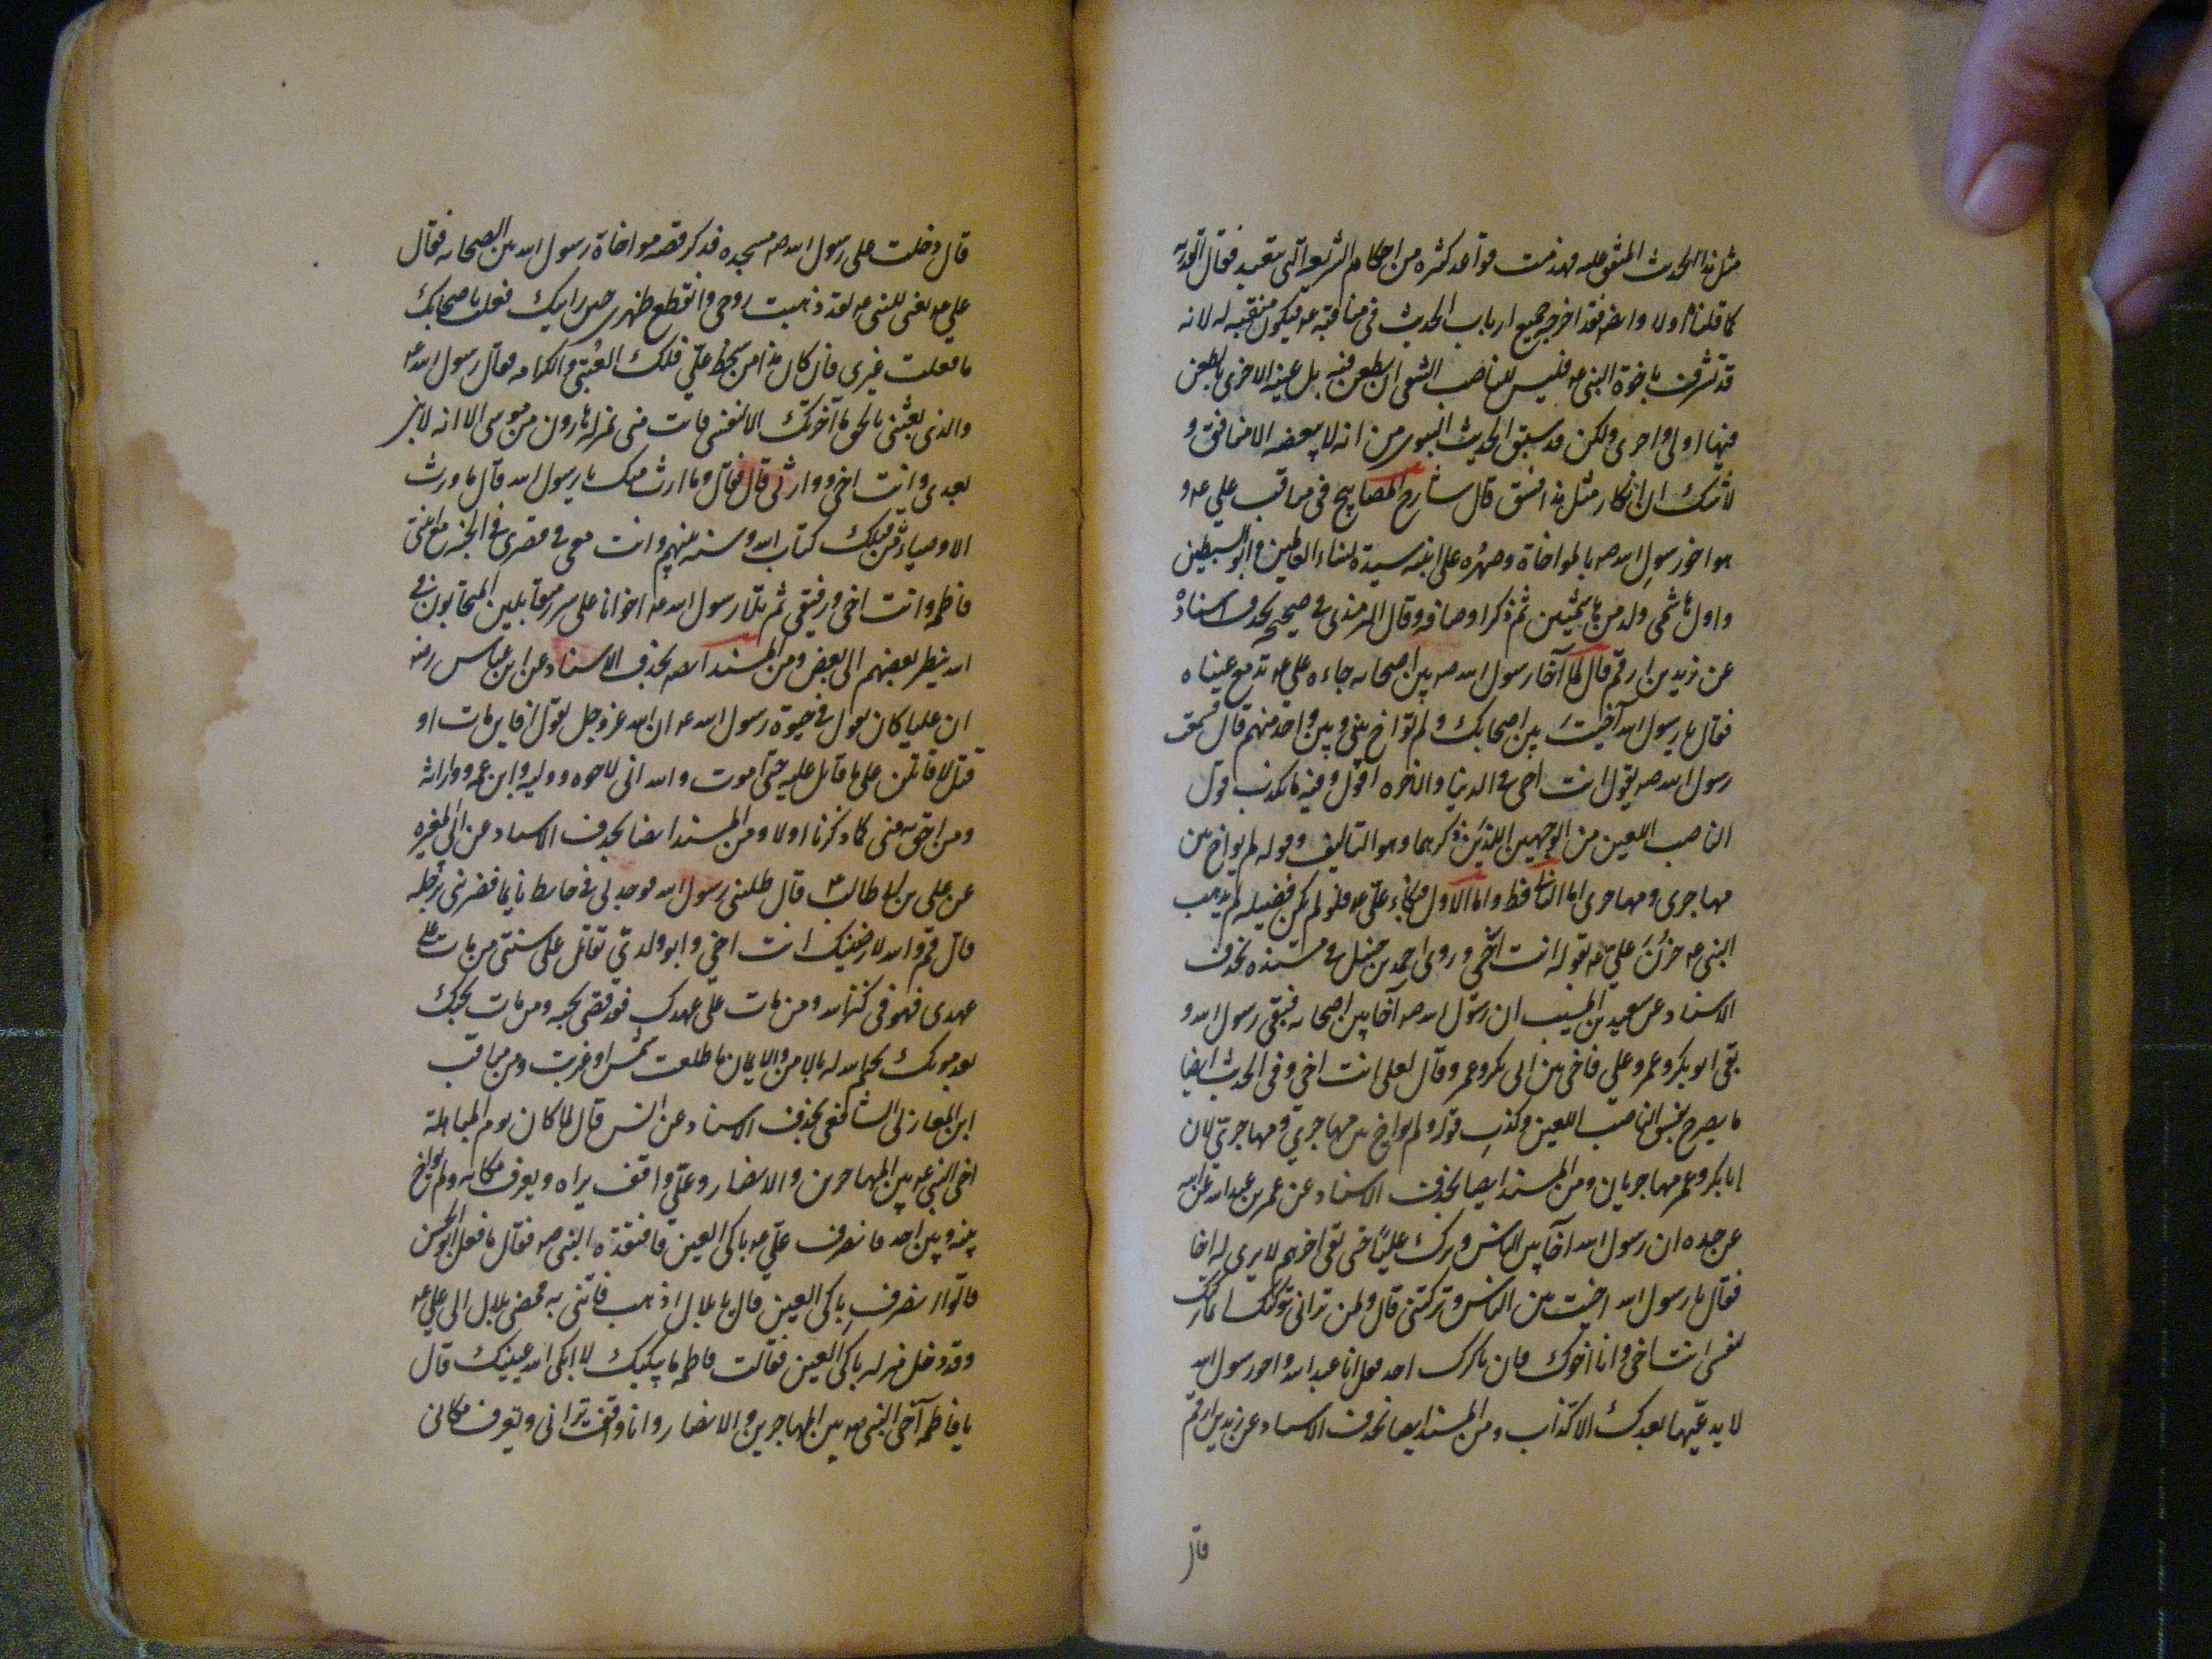 مثل هذا الحديث المتفق عليه فهدمت قواعد كثيره من احكام الشريعه التى فقال
كما قلناه اولا وايضا فقد اخرجه جميع ارباب الحديث فى مناقبه عه فيكون منقبه له لانه
قد تشرف باخوة النبى عه فليس للناصب الشقى ان يطعن فيه بل عينه الاخرى بالطعن
فيها اولى واحرى ولكن قد سبق الحديث النبوى من انه لا يبغضه الا منافق و
لا شك ان انكار مثل هذا فسق قال شارح المصابيح فى مناقب على عه و
هو اخو رسول الله صه بالمواخاة وصهره على ابنته سيدة نساء العالمين وابو السبطين
واول هاشمى ولد من هاشميين ثم ذكر اوصافه وقال الترمذى فى صحيحه بحذف اسناده
عن زيد بن ارقم قال لما آخا رسول الله صه بين اصحابه جاءه على عه تدمع عيناه
فقال يا رسول الله آخيت بين اصحابك ولم تواخ بينى وبين واحد منهم قال فسمعت
رسول الله صه يقول انت اخى فى الدنيا والاخره اقول وفيه ما يكذب قول
الناصب اللعين من الوجهين اللذين ذكرهما وهو التاليف وقوله لم يواخ بين
مهاجرى ومهاجرى اما الثانى فظ واما الاول فبكاء على عه فلو لم يكن فضيله لم يذهب
النبى عه حزن على عه بقوله انت اخى وروى احمد بن حنبل فى مسنده بحذف
الاسناد عن سعيد بن المسيب ان رسول الله صه آخا بين اصحابه فبقى رسول الله و
بقى ابو بكر وعمر وعلى فاخى بين ابى بكر وعمر وقال لعلى انت اخى وفى الحديث ايضا
ما يصرح الناصب اللعين وكذب قوله ولم يواخ بين مهاجرى ومهاجرى لان
ابا بكر وعمر مهاجريان ومن المسند ايضا بحذف الاسناد عن عمر بن عبد الله عن ابيه
عن جده ان رسول الله آخا بين الناس وترك عليا حتى بقى اخرهم لا يرى له اخا
فقال يا رسول الله اخيت بين الناس وتركتنى قال ولمن ترانى تركتك انما تركتك
لنفسى انت اخى وانا اخوك فان ذكرك احد فقل انا عبد الله واخو رسول الله
لا يدعيها بعدك الا كذاب ومن المسند ايضا بحذف الاسناد عن زيد بن ارقم
قال
قال دخلت على رسول الله صه مسجده فذكر قصه مواخاة رسول الله بين الصحابه فقال
على عه يعنى للنبى عه لقد ذهبت روحى وانقطع ظهرى حين رايتك فعلت باصحابك
ما فعلت غيرى فان كان هذا من سخط على فلك العتبى والكرامه فقال رسول الله عه
والذى بعثنى بالحق ما آخرتك الا لنفسى فانت منى بمنزله هارون من موسى الا انه لا نبى
بعدى وانت اخى ووارثى قال فقال وما ارث منك يا رسول الله قال ما ورث
الاوصياء من قبلك كتاب الله وسنه نبيهم وانت معى فى قصرى فى الجنه مع ابنتى
فاطمه وانت اخى ورفيقى ثم تلا رسول الله عه اخوانا على سرر متقابلين المتحابون فى
الله ينظر بعضهم الى بعض ومن المسند ايضا بحذف الاسناد عن ابن عباس رضه
ان عليا كان يقول فى حيوة رسول الله عه ان الله عز وجل يقول افاين مات او
قتل لاقاتلن على ما قاتل عليه حتى اموت والله انى لاخوه ووليه وابن عمه ووارثه
ومن احق به منى كما ذكرنا اولا ومن المسند ايضا بحذف الاسناد عن ابى المغيره
عن على بن ابى طالب ع قال طلبنى رسول الله فوجدنى فى حائط نايما فضربنى برجله
قال قم والله لارضينك انت اخى وابو ولدى تقاتل على سنتى من مات على
عهدى فهو فى كنز الله ومن مات على عهدك فقد قضى نحبه ومن مات بحبك
بعد موتك يختم الله له بالامن والايمان ما طلعت شمس او غربت ومن مناقب
ابن المغازلى الشافعى بحذف الاسناد عن انس قال لما كان يوم المباهلة
اخى النبى عه بين المهاجرين والانصار وعلى واقف يراه ويعرف مكانه ولم يواخ
بينه وبين احد فانصرف على عه باكى العين فافتقده النبى صه فقال ما فعل ابو الحسن
قالوا انصرف باكى العين قال يا بلال اذهب فاتنى به فمضى بلال الى على عه
وقد دخل منزله باكى العين فقالت فاطمه ما يبكيك لا ابكى الله عينيك قال
يا فاطمه آخى النبى صه بين المهاجرين والانصار وانا واقف يرانى ويعرف مكانى